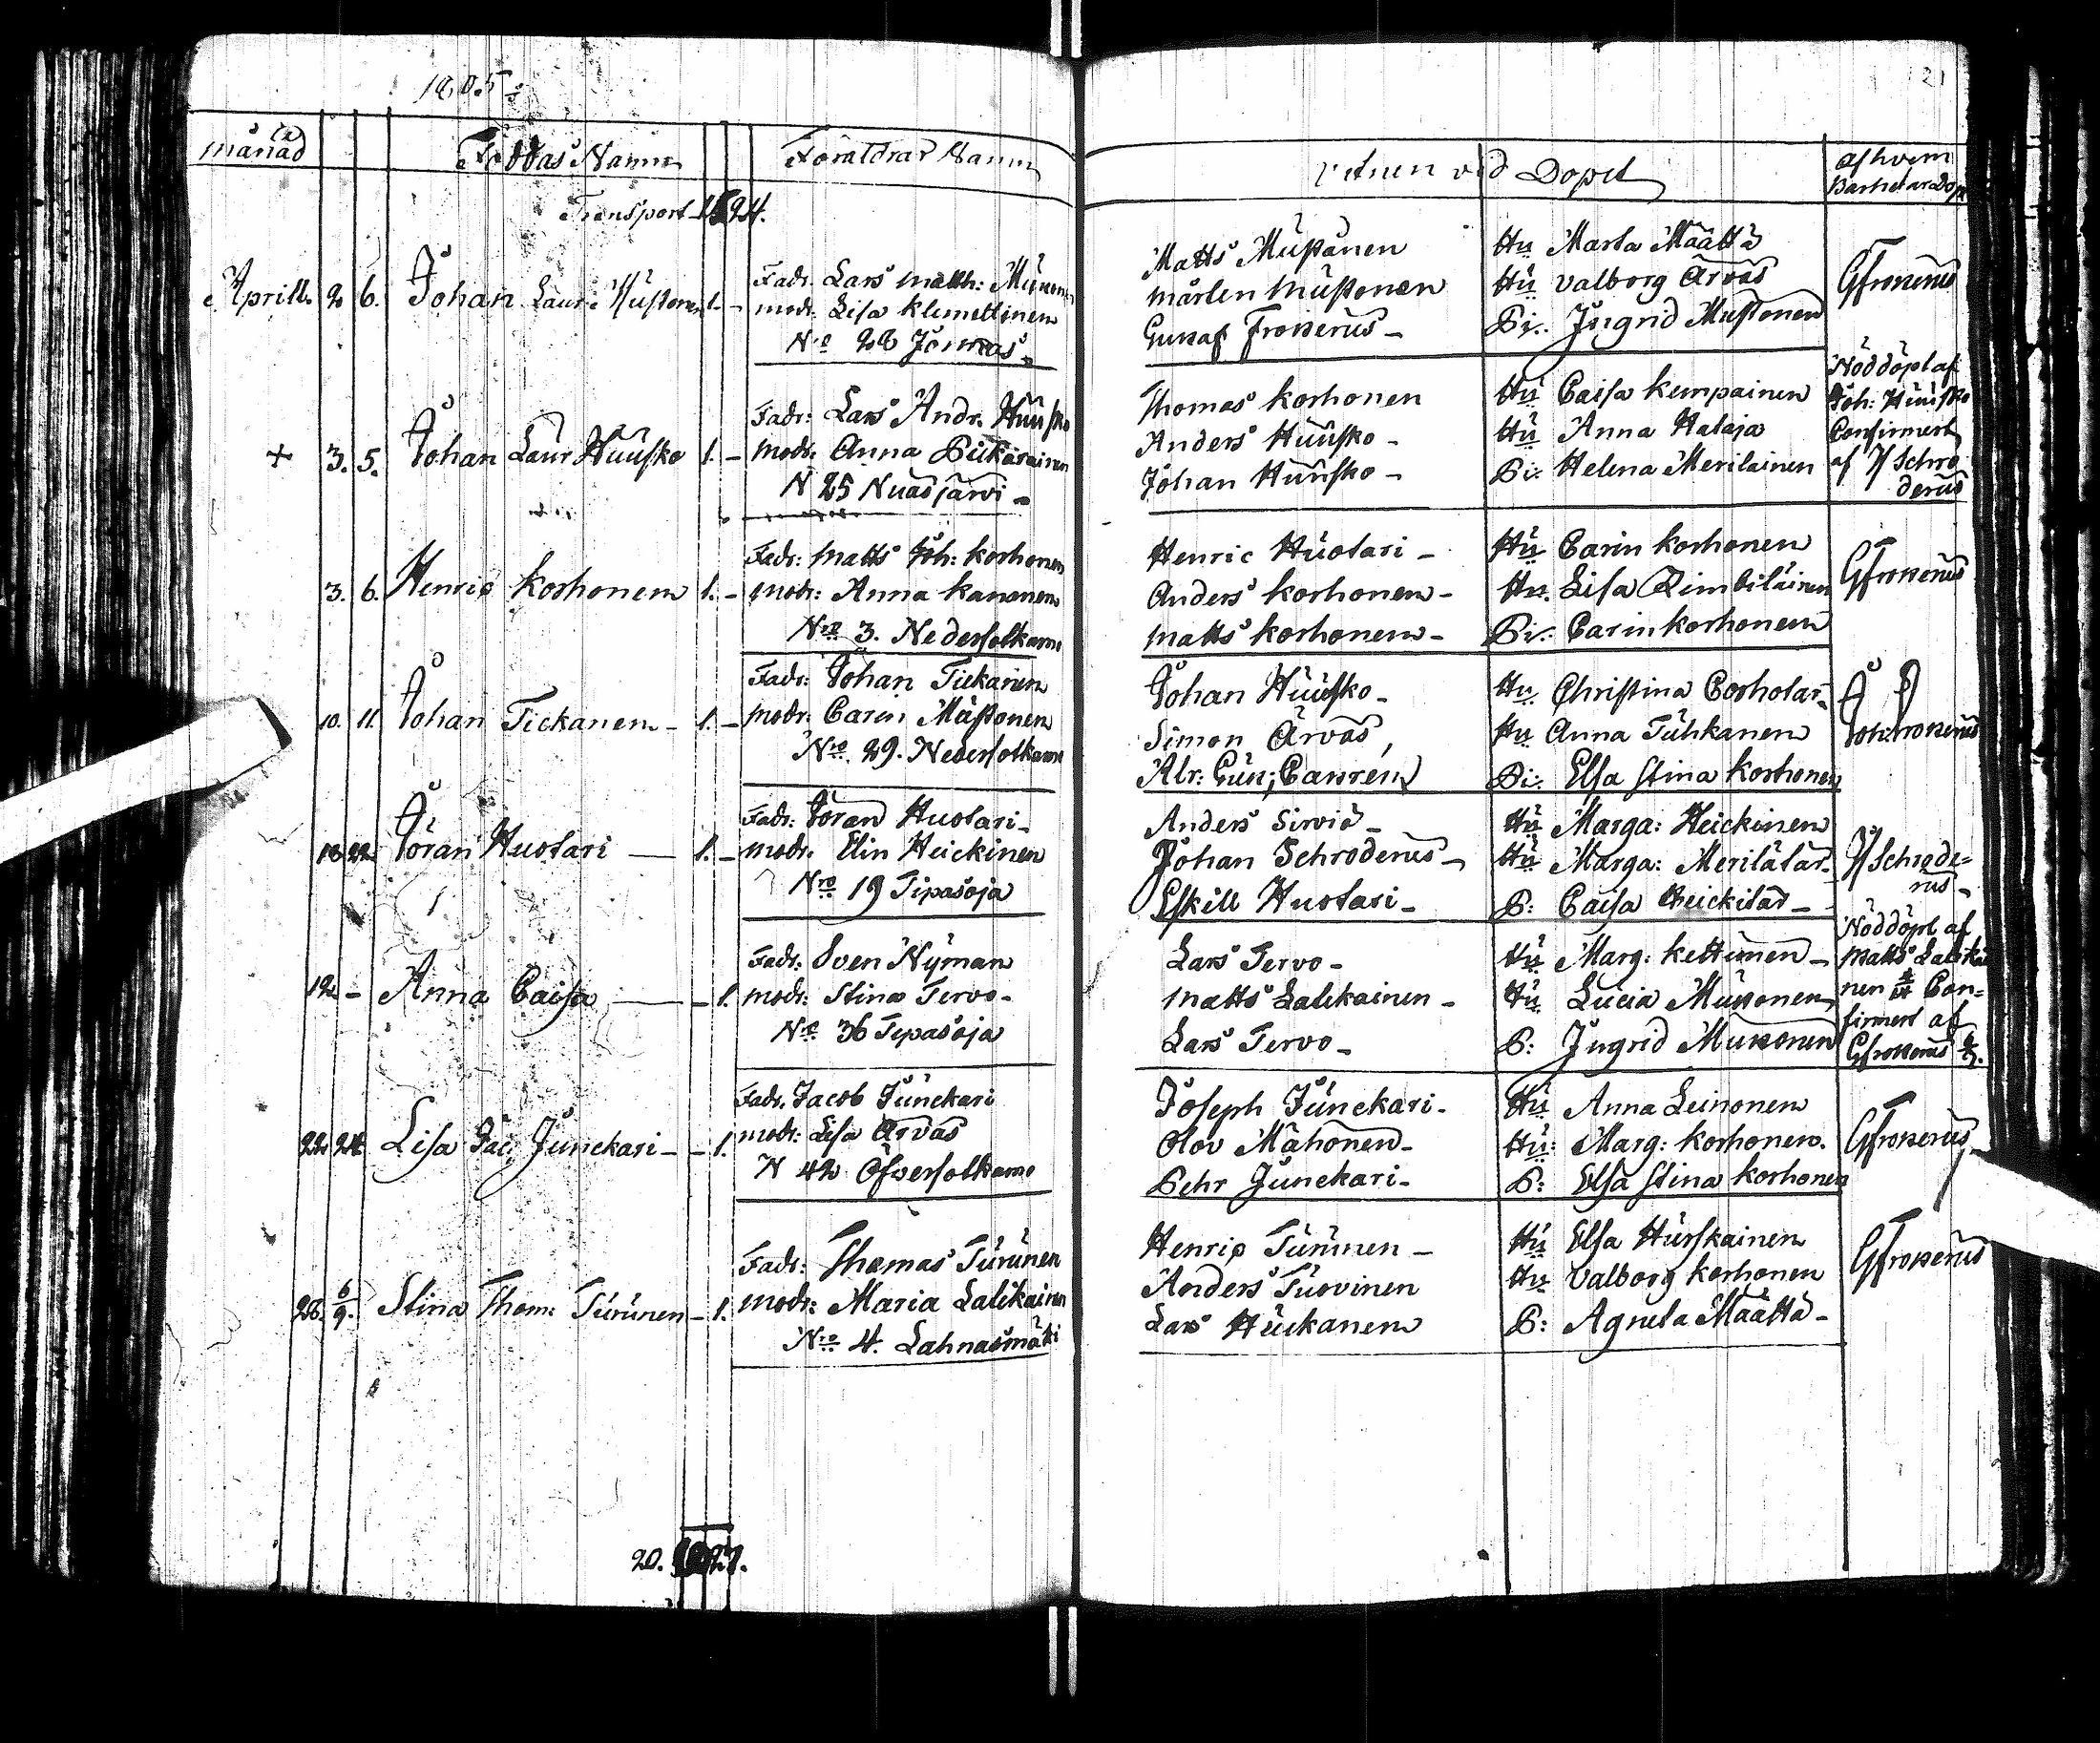 1805
21
månad
Föddas Namn
Föräldrar Namn
Vitnen vid Dopet
af hvem Barnet är Döpt
Transport 24.
Aprill. 2 6. Johan Laur: Mustonen 1. -
Fadr: Lars Matth: Mustonen
modr: Lisa Klemettinen
No 28 Jormas
Matts Mustonen
Mårten Mustonen
Gustaf Frosterus -
Hu Marta Määttä
Hu Valborg Arvas
Pi: Ingrid Mustonen
GFrosterus
+ 3. 5. Johan Laur Huusko 1. -
Fadr: Lars Andr. Huusko
modr: Anna Pitkäräinen
N 25 Nuasjärvi -
Thomas Korhonen
Anders Huusko -
Johan Huusko -
Hu Caisa Kempainen
Hu Anna Hataja
Pi: Helena Meriläinen
Nöddöpt af
Joh: Huusko
Confirmert
af JSchro
derus
3. 6. Henric Korhonen 1. -
Fadr: Matts Joh: Korhonen
modr: Anna Kananen
Nro 3. Nedersotkamo
Henric Huotari -
Anders Korhonen -
Matts Korhonen -
Hu Carin Korhonen
Hu. Lisa Rimbiläinen
Pi: Carin Korhonen
GFrosterus
10. 11. Johan Tickanen - 1. -
Fadr: Johan Tickanen
modr: Caren Mustonen
Nro 29. Nedersotkamo
Johan Huusko -
Simon Arvas,
Alr: Gus;
Hu Christina Corhotar -
Hu Anna Tuhkanen
Pi: Elsa Stina Korhonen
Joh:Frosterus
18 22 Jöran Huotari — 1. -
Fadr: Jöran Huotari -
modr. Elin Heickinen
Nro 19 Tipasoja
Anders Sirviö -
Johan Schroderus -
Eskill Huotari -
Hu Marga: Heickinen
Hu Marga: Merilätar -
P: Caisa Heickitar -
JSchrode=
rus -
12 - Anna Caisa — - 1.
Fadr: Sven Nyman
modr: Stina Tervo -
No 36 Tipasoja
Lars Tervo -
Matts Laukainen -
Lars Tervo -
Hu Marg: Kettunen -
Hu Lucia Mustonen
P: Ingrid Mustonen
Nöddöpt af
Matts Laukai
nen Con=
firmert af
GFrosterus
22 24 Lisa Jac; Junckari - - 1.
Fadr. Jacob Junckari
modr: Lisa Arvas
N 42 Öfversotkamo
Joseph Junckari -
Olov Mähönen -
Pehr Junckari -
Hu Anna Leinonen
Hu: Marg: Korhonen.
P: Elsa Stina Korhonen
GFrosterus -
28. 6/9. Stina Thom: Turunen - 1.
Fadr: Thomas Turunen
modr: Maria Laukainen
Nro 4. Lahnasmäki
Henric Turunen -
Anders Tuovinen
Lars Huckanen
Hu Elsa Hurskainen
Hu Valborg Korhonen
P: Agneta Määttä -
GFrosterus
20. 27.